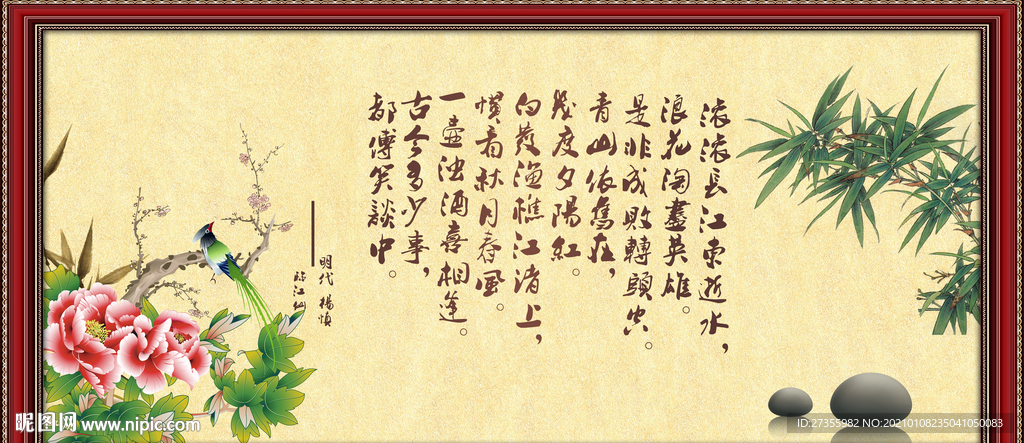 滚滚長江東逝水，
浪花淘盡英雄。
是非成敗轉頭空。
青山依舊在，
幾度夕陽紅。
白發漁樵江渚上，
慣看秋月春風。
一壺浊酒喜相逢。
古今多少事，
都傅笑談中。
明代 楊慎
临江仙
昵图网 www.nipic.com
ID:27355982 NO:20210108235041050083